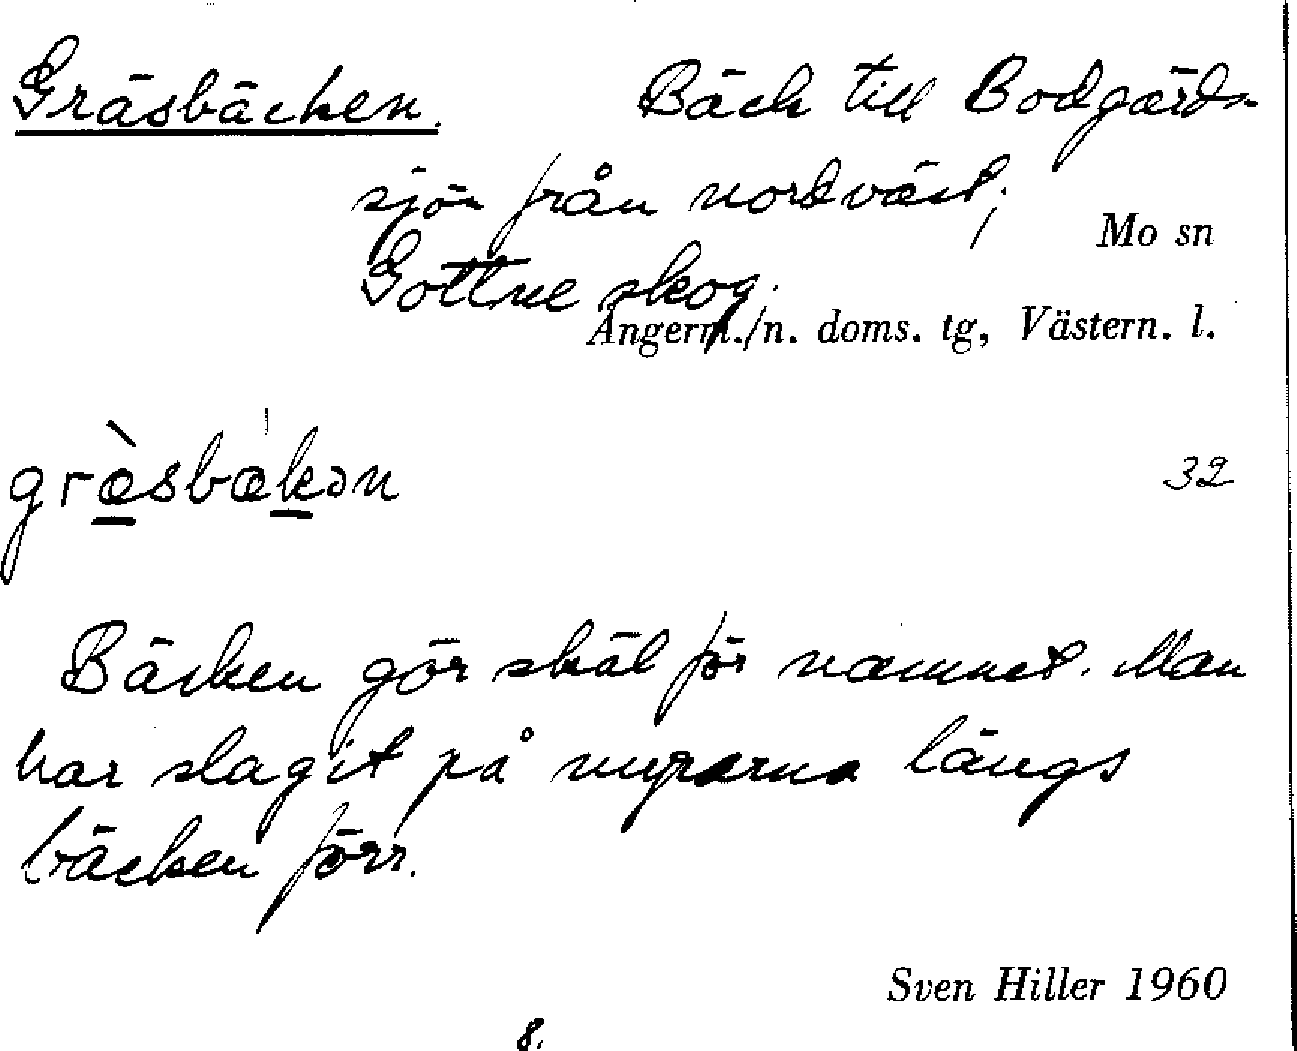 Gräsbäcken. Bäck till Bodgärds-
sjön från nordväst;
Mo sn
Gottne skog.
Ångerm./n. doms. tg, Västern. l.
græ̀sbækən
32
Bäcken gör skäl för namnet. Man
har slagit på myrarna längs
bäcken förr.
Sven Hiller 1960
8.